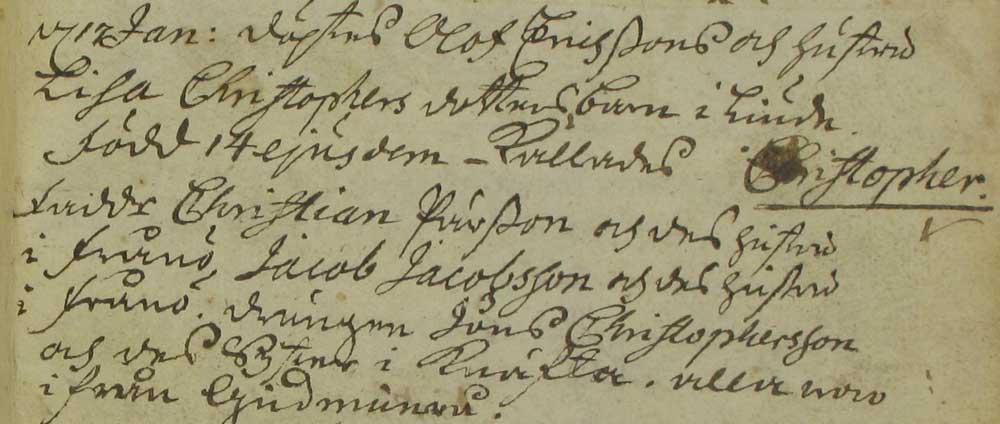 d 17 Jan: döptes Olof Erichssons och hustru
Lisa Christophers dotters barn i Linde.
Född 14 ejusdem – Kallades Christopher.
Faddr Christian Pärsson och des hustru
i Franö, Jacob Jacobsson och des hustru
i Franö. drängen Jöns Christophersson
och des Syster i Knäfta. alla
ifrån Gudmunrå.